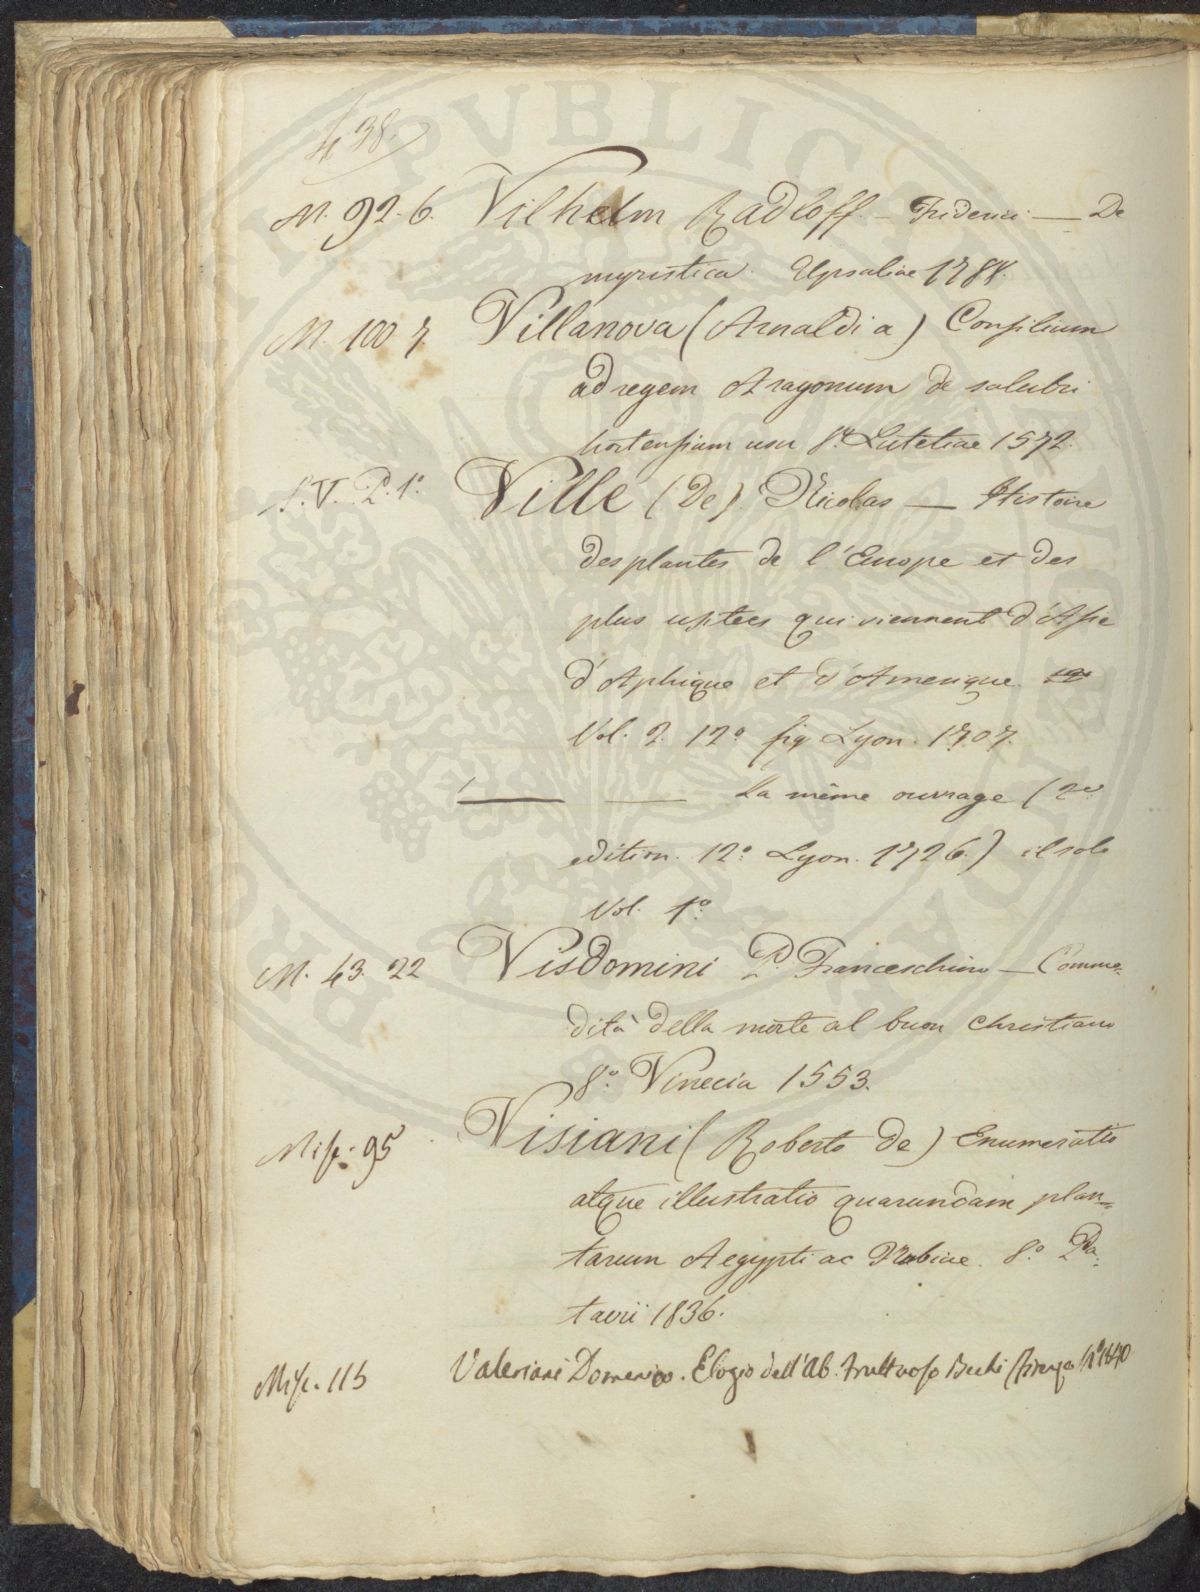 438.
M. 92. 6. Vilhelm Radloff. — Friderici — De
myristica. Upsaliae 1788.
M. 100 7. Villanova (Arnaldi a) Consilium
ad regem Aragonum de salubri
hortensium usu 8.° Lutetiae 1572.
S. V. P. 1.° Ville (De) Nicolas — Histoire
des plantes de l'Europe et des
plus usitees qui viennent d'Asie
d'Aphique et d'Amerique.
Vol. 2. 12° fig Lyon. 1707.
— — La même ouvrage (2e
edition. 12.° Lyon. 1726.) il solo
Vol. 1.°
M. 43. 22 Visdomini P. Franceschino — Commo-
dità della morte al buon christiano
8.° Vinecia 1553.
Misc. 95 Visiani (Roberto de) Enumeratio
atque illustratio quarundam plan-
tarum Aegypti ac Nubiae. 8.° Pa-
tavii 1836.
Misc. 115 Valeriani Domenico. Elogio dell'Ab. Fruttuoso Becchi Firenze 1840
PVBLICA